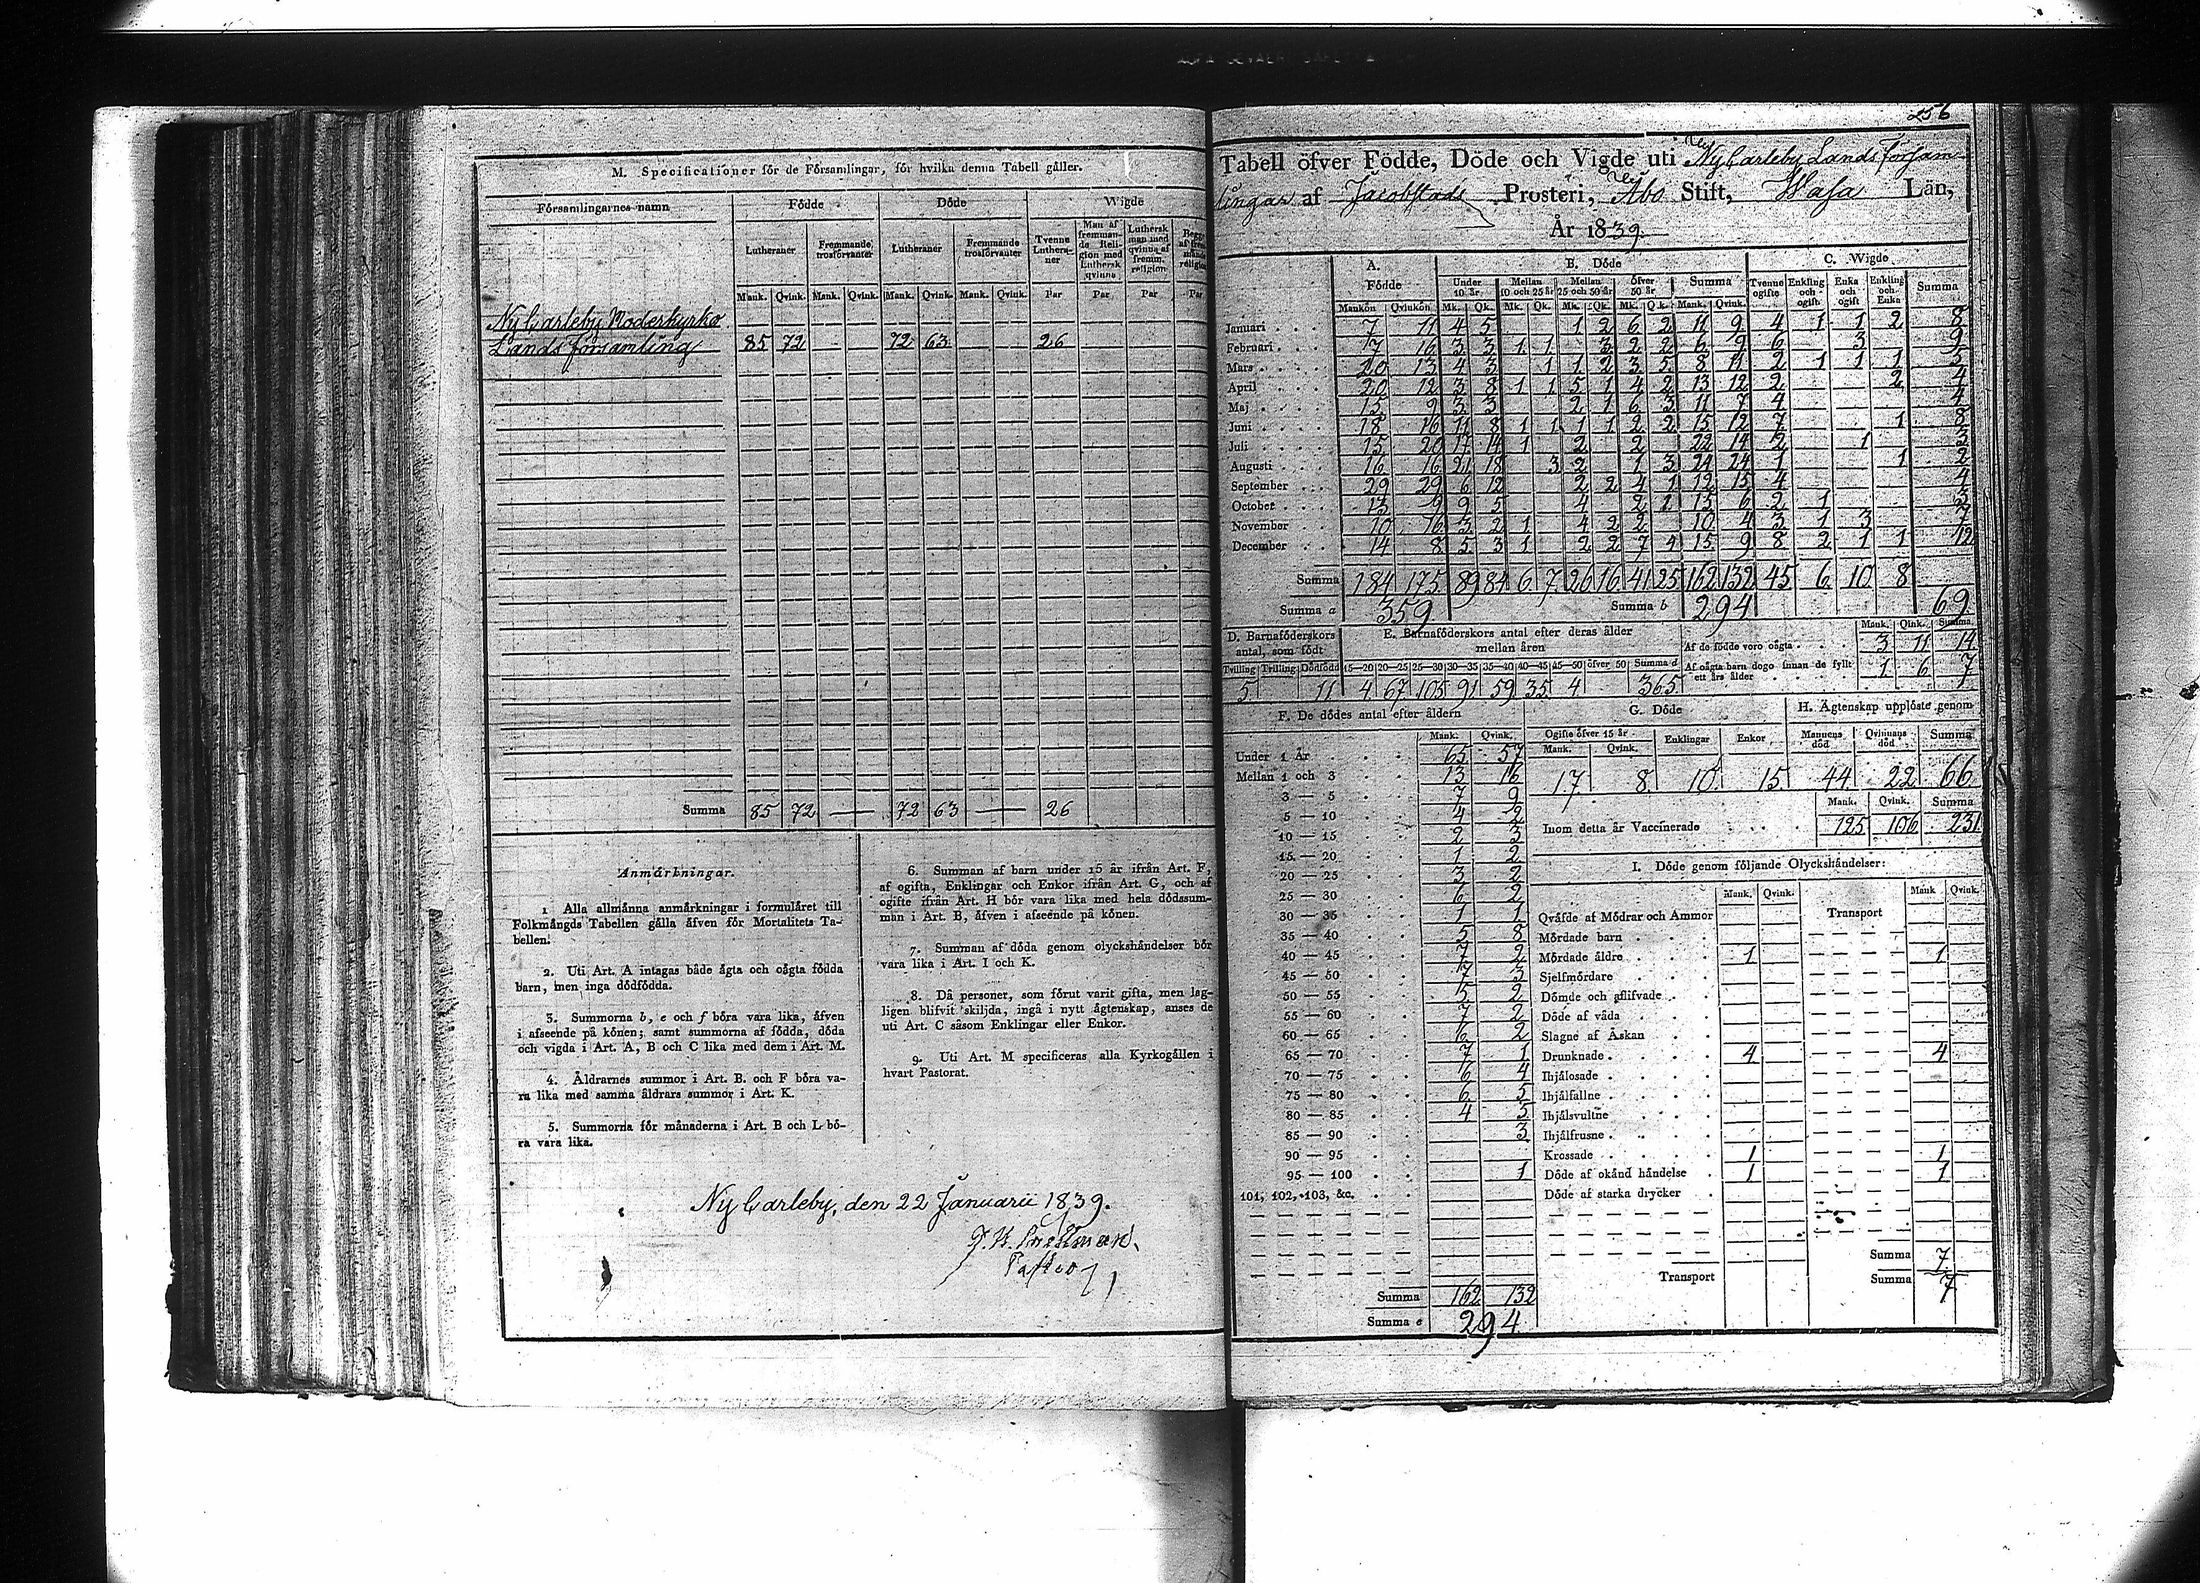 M. Specificationer för de Församlingar, för hvilka denna Tabell gäller.
Församlingarnes namn Födde Döde Wigde
Lutheraner Fremmande trosförvanter Lutheraner Fremmande trosförvanter Tvenne Lutheraner Man af fremmande Religion med Luthersk qvinna Luthersk man med qvinna af fremm. religion
Mank. Qvink. Mank. Qvink. Mank. Qvink. Mank. Qvink. Par Par Par Par
Ny Carleby Moderkyrko
Landsförsamling 85 72 — — 72 63 — — 26
Summa 85 72 — 72 63 — 26
Anmärkningar.
1 Alla allmänna anmärkningar i formuläret till
Folkmängds Tabellen gälla äfven för Mortalitets Ta-
bellen.
2. Uti Art. A intagas både ägta och oägta födda
barn, men inga dödfödda.
3. Summorna b, e och f böra vara lika, äfven
i afseende på könen; samt summorna af födda, döda
och vigda i Art. A, B och C lika med dem i Art. M.
4. Åldrarnes summor i Art. B. och F böra va-
ra lika med samma åldrars summor i Art. K.
5. Summorna för månaderna i Art. B och L bö-
ra vara lika.
6. Summan af barn under 15 år ifrån Art. F,
af ogifta, Enklingar och Enkor ifrån Art. G, och af
ogifte ifrån Art. H bör vara lika med hela dödssum-
man i Art. B, äfven i afseende på könen.
7. Summan af döda genom olyckshändelser bör
vara lika i Art. I och K.
8. Då personer, som förut varit gifta, men lag-
ligen blifvit skiljda, ingå i nytt ägtenskap, anses de
uti Art. C såsom Enklingar eller Enkor.
9. Uti Art. M specificeras alla Kyrkogällen i
hvart Pastorat.
Ny Carleby, den 22 Januarii 1839.
Pastor
256
Tabell öfver Födde, Döde och Vigde uti Ny Carleby Lands försam-
lingar af Jacobstads Prosteri, Åbo Stift, Wasa Län,
År 1839.
A. Födde B. Döde C. Wigde
Under 10 år Mellan 10 och 25 år Mellan 25 och 50 år öfver 50 år Summa Tvenne ogifte Enkling och ogift Enka och ogift Enkling och Enka Summa
Mankön Qvinkön Mk. Qk. Mk. Qk. Mk. Qk. Mk. Qk. Mank. Qvink.
Januari 7 11 4 5 1 2 6 2 11 9 4 1 1 2 8
Februari 7 16 3 3 1 1 3 2 2 6 9 6 3 9
Mars 20 13 4 3 1 1 2 3 5 8 11 2 1 1 1 5
April 20 12 3 8 1 1 5 1 4 2 13 12 2 2 4
Maj 15 9 3 3 2 1 6 3 11 7 4 4
Juni 18 16 11 8 1 1 1 1 2 2 15 12 7 1 8
Juli 15 20 17 14 1 2 2 22 14 2 1 3
Augusti 16 16 21 18 3 2 1 3 24 24 1 1 2
September 29 29 6 12 2 2 4 1 12 15 4 4
October 13 9 9 5 4 2 1 15 6 2 1 3
November 10 16 3 2 1 4 2 2 10 4 3 1 3 7
December 14 8 5 3 1 2 2 7 4 15 9 8 2 1 1 12
Summa 184 175 89 84 6 7 26 16 41 25 162 132 45 6 10 8
Summa a 359 Summa b 294 69
D. Barnaföderskors antal, som födt E. Barnaföderskors antal efter deras ålder mellan åren Mank. Qink. Summa
Af de födde voro oägta 3 11 14
Tvilling Trilling Dödfödd 15—20 20—25 25—30 30—35 35—40 40—45 45—50 öfver 50 Summa d
Af oägta barn dogo innan de fyllt ett års ålder 1 6 7
5 11 4 67 105 91 59 35 4 365
F. De dödes antal efter åldern G. Döde H. Ägtenskap upplöste genom
Mank. Qvink. Ogifte öfver 15 år Mank. Qvink. Enklingar Enkor Mannens död Qvinnans död Summa
17 8 10 15 44 22 66
Under 1 År 65 57
Mellan 1 och 3 13 16
3 — 5 7 9
5 — 10 4 2
10 — 15 2 3
15 — 20 1 2
20 — 25 3 2
25 — 30 6 2
30 — 35 1 1
35 — 40 5 8
40 — 45 7 2
45 — 50 7 3
50 — 55 5 2
55 — 60 7 2
60 — 65 6 2
65 — 70 7 1
70 — 75 6 4
75 — 80 6 5
80 — 85 4 5
85 — 90 3
90 — 95
95 — 100 1
101, 102, 103, &c.
Summa 162 132
Summa e 294
Mank. Qvink. Summa
Inom detta år Vaccinerade 125 106 231
I. Döde genom följande Olyckshändelser:
Mank. Qvink. Mank Qvink.
Qväfde af Mödrar och Ammor Transport
Mördade barn
Mördade äldre 1 1
Sjelfmördare
Dömde och aflifvade
Döde af våda
Slagne af Åskan
Drunknade 4 4
Ihjälosade
Ihjälfallne
Ihjälsvultne
Ihjälfrusne
Krossade 1 1
Döde af okänd händelse 1 1
Döde af starka drycker
Summa 7
Transport Summa 7